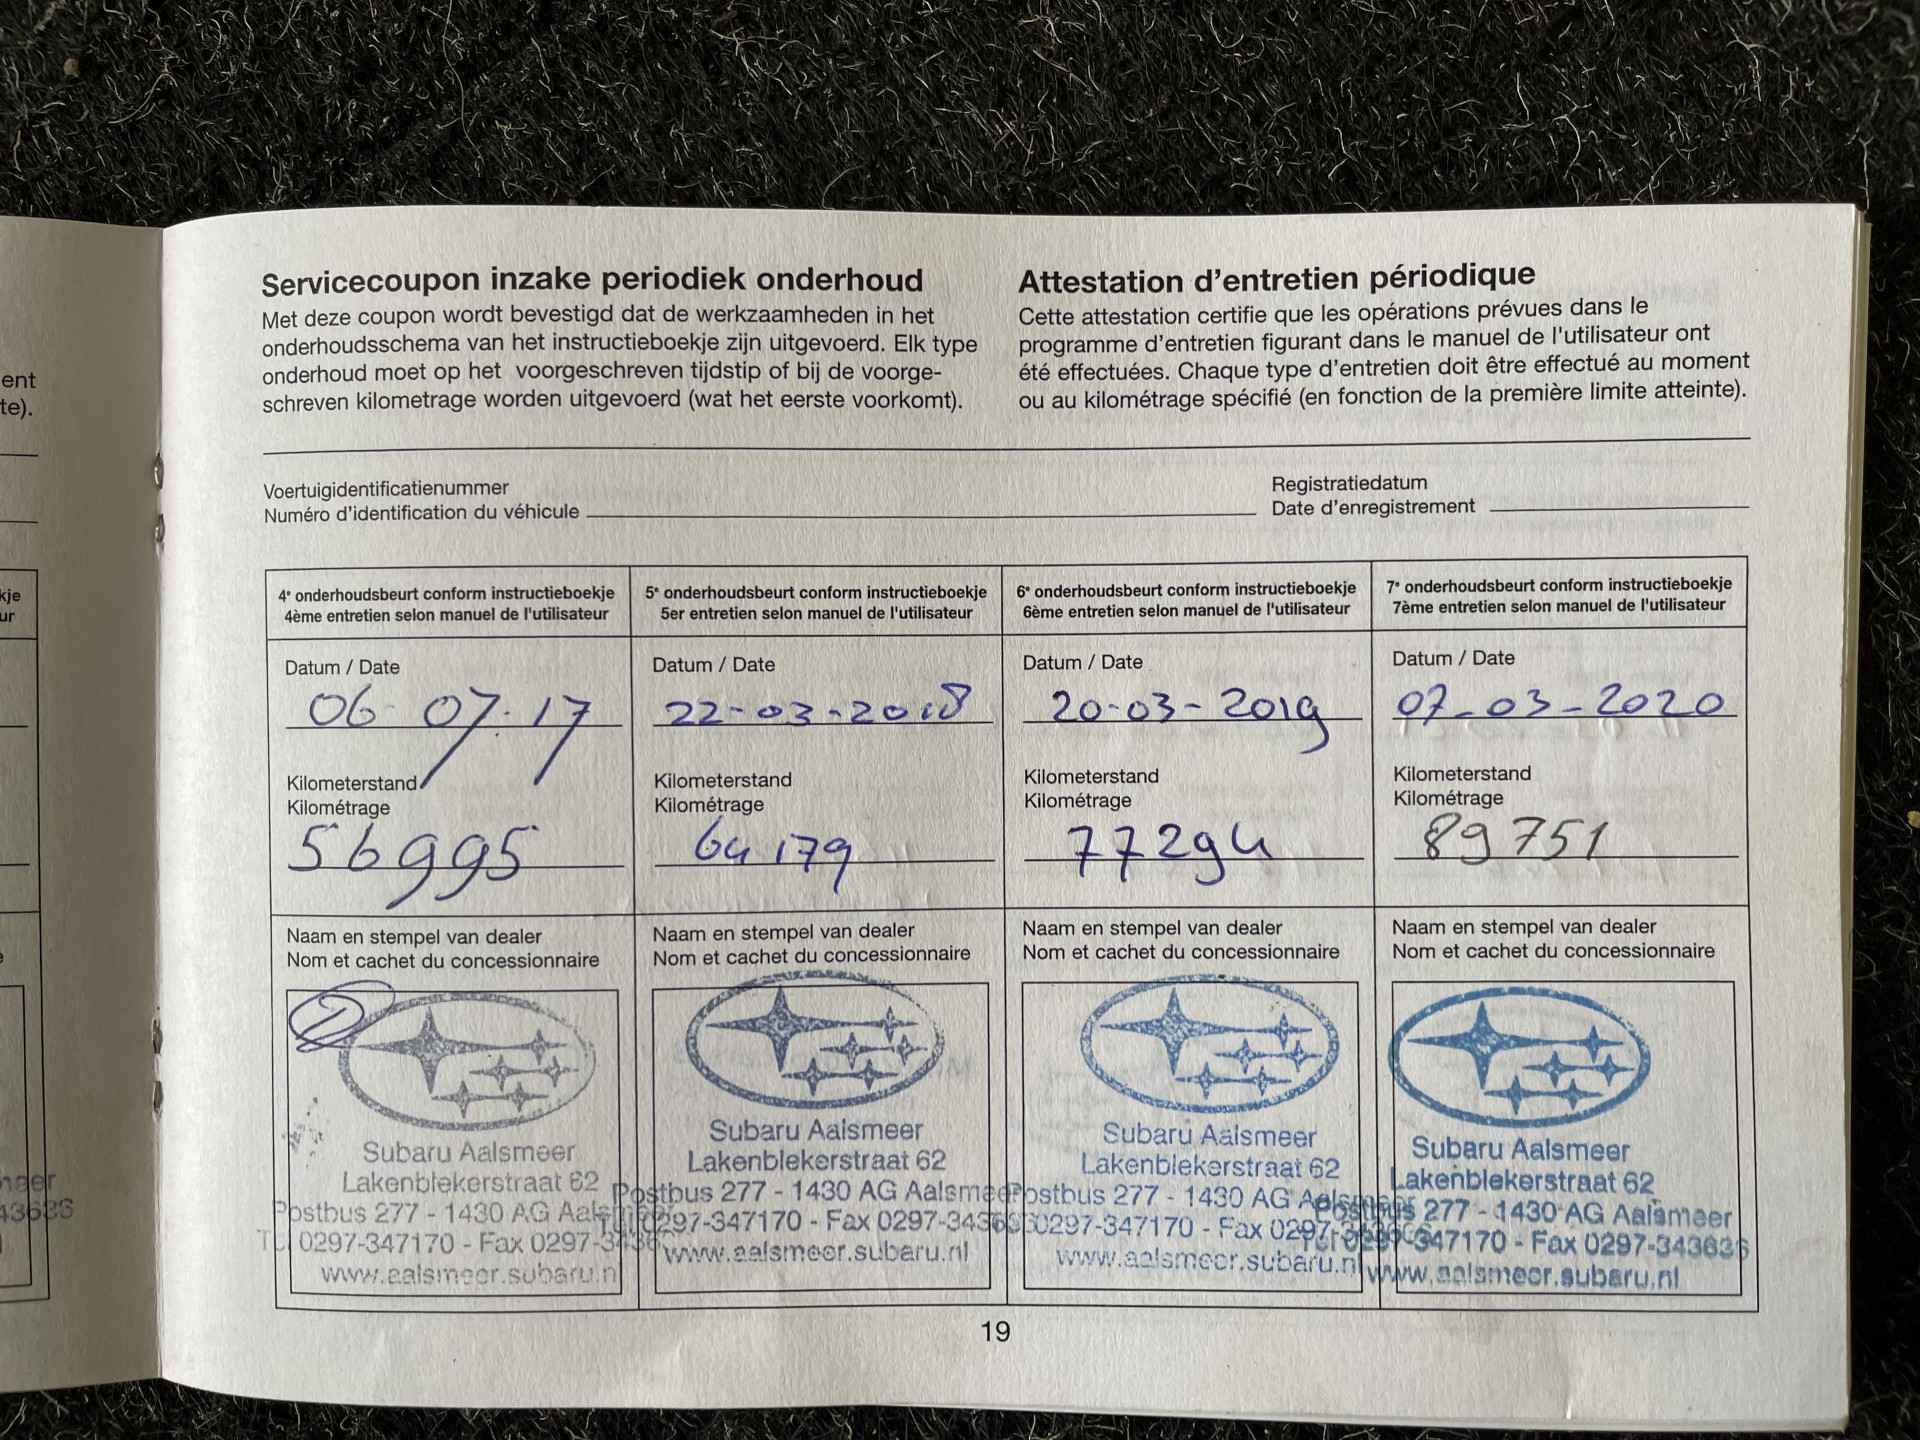 ent
te).
kje
ur
Servicecoupon inzake periodiek onderhoud
Met deze coupon wordt bevestigd dat de werkzaamheden in het
onderhoudsschema van het instructieboekje zijn uitgevoerd. Elk type
onderhoud moet op het voorgeschreven tijdstip of bij de voorge-
schreven kilometrage worden uitgevoerd (wat het eerste voorkomt).
Attestation d'entretien périodique
Cette attestation certifie que les opérations prévues dans le
programme d'entretien figurant dans le manuel de l'utilisateur ont
été effectuées. Chaque type d'entretien doit être effectué au moment
ou au kilométrage spécifié (en fonction de la première limite atteinte).
Voertuigidentificatienummer
Numéro d'identification du véhicule
Registratiedatum
Date d'enregistrement
4e onderhoudsbeurt conform instructieboekje
4ème entretien selon manuel de l'utilisateur
Datum / Date
06-07-17
Kilometerstand
Kilométrage
56995
Naam en stempel van dealer
Nom et cachet du concessionnaire
Subaru Aalsmeer
Lakenblekerstraat 62
Postbus 277 - 1430 AG
0297-347170 - Fax
www.aalsmeer.subaru.n
5e onderhoudsbeurt conform instructieboekje
5er entretien selon manuel de l'utilisateur
Datum / Date
22-03-2018
Kilometerstand
Kilométrage
64179
Naam en stempel van dealer
Nom et cachet du concessionnaire
Subaru Aalsmeer
Lakenblekerstraat 62
Postbus 277 - 1430 AG Aalsmeer
0297-347170 - Fax
www.aalsmeer.subaru.nl
6e onderhoudsbeurt conform instructieboekje
6ème entretien selon manuel de l'utilisateur
Datum / Date
20-03-2019
Kilometerstand
Kilométrage
77294
Naam en stempel van dealer
Nom et cachet du concessionnaire
Subaru Aalsmeer
Lakenblekerstraat 62
Postbus 277 - 1430 AG Aalsmeer
0297-347170 - Fax
www.aalsmeer.subaru.nl
7e onderhoudsbeurt conform instructieboekje
7ème entretien selon manuel de l'utilisateur
Datum / Date
07-03-2020
Kilometerstand
Kilométrage
89751
Naam en stempel van dealer
Nom et cachet du concessionnaire
Subaru Aalsmeer
Lakenblekerstraat 62
Postbus 277 - 1430 AG Aalsmeer
Tel 0297-347170 - Fax 0297-343636
www.aalsmeer.subaru.nl
19